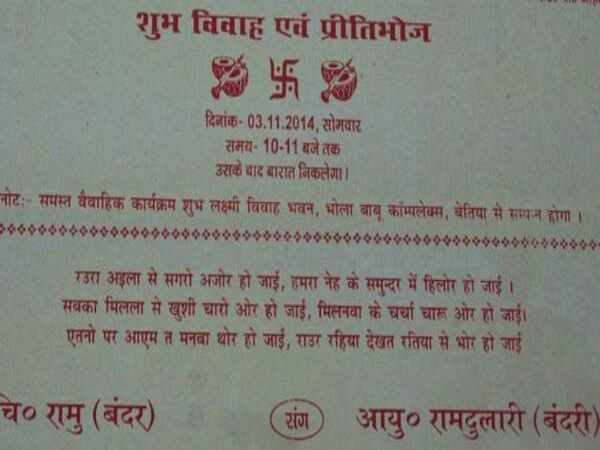 शुभ विवाह एवं प्रीतिभोज
दिनांक- 03.11.2014, सोमवार
समय- 10-11 बजे तक
उसके बाद बारात निकलेगा।
नोट:- समस्त वैवाहिक कार्यक्रम शुभ लक्ष्मी विवाह भवन, भोला बाबू कॉम्पलेक्स, बेतिया से सम्पन्न होगा ।
रउरा अइला से सगरो अजोर हो जाई, हमरा नेह के समुन्दर में हिलोर हो जाई ।
सबका मिलला से खुशी चारो ओर हो जाई, मिलनवा के चर्चा चारू ओर हो जाई।
एतनो पर आएम त मनवा थोर हो जाई, राउर रहिया देखत रतिया से भोर हो जाई
चि० रामु (बंदर) संग आयु० रामदुलारी (बंदरी)